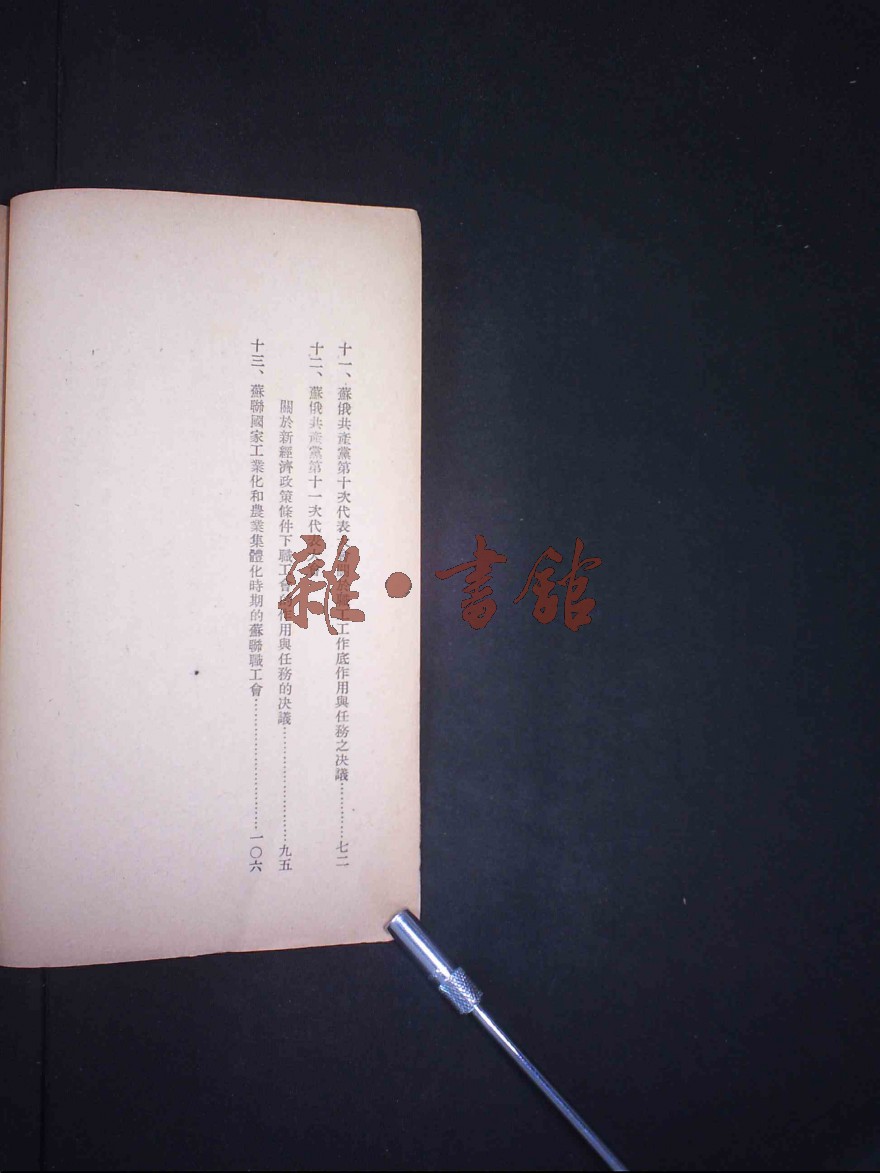 十一、蘇俄共產黨第十次代表工作底作用與任務之決議…………七二
十二、蘇俄共產黨第十一次代表
關於新經濟政策條件下職工會的作用與任務的決議…………九五
十三、蘇聯國家工業化和農業集體化時期的蘇聯職工會…………一〇六
雜·書館